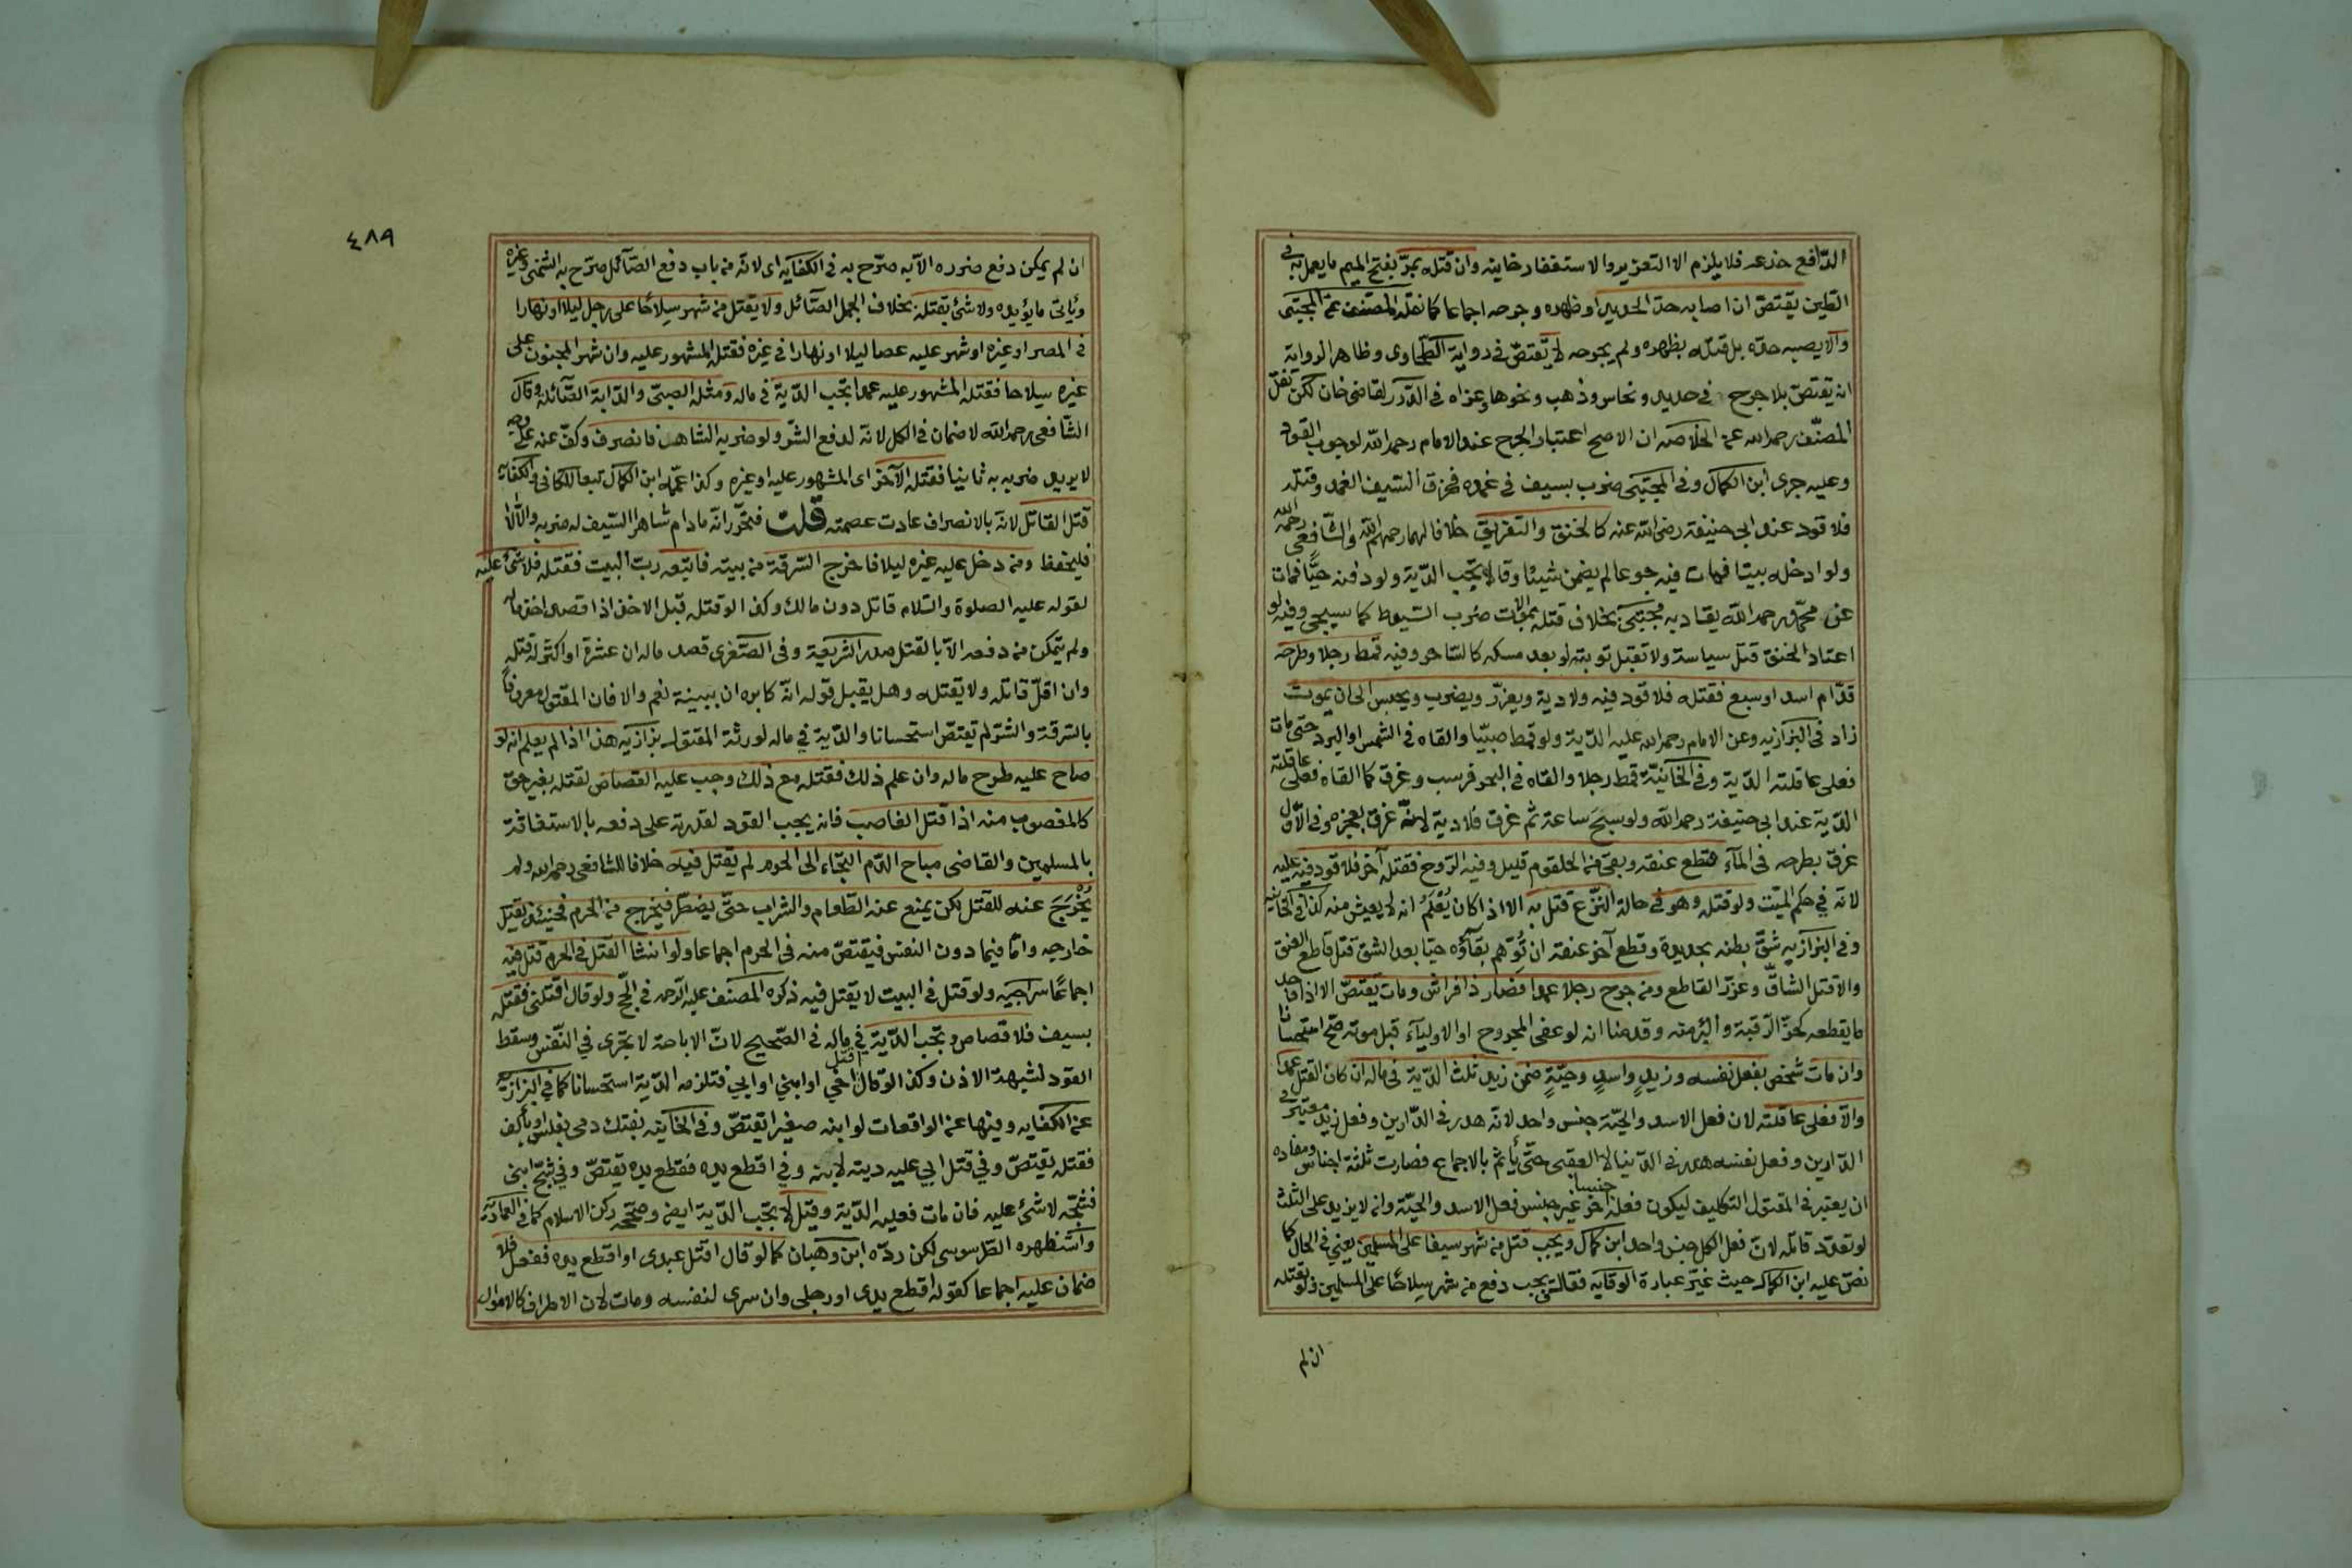 الدافع خدعه فلا يلزم الا التعزير والاستغفار خانيه وان قتله بمرّ بفتح الميم ما يعمل به في
الطين يقتص ان اصابه حد الحديد او ظهره وجرحه اجماعا كما نقله المصنف عن المجتبى
والا يصبه حده بل قتله بظهره ولم يجرحه لا يقتص في رواية الطحاوى وظاهر الرواية
انه يقتص بلا جرح في حديد ونحاس وذهب ونحوها وعزاه في الدرر لقاضى خان لكن نقل
المصنف رحمه الله عن الخلاصه ان الاصح اعتبار الجرح عند الامام رحمه الله لوجوب القود
وعليه جرى ابن الكمال وفى المجتبى ضرب بسيف في غمده فخرق السيف الغمد وقتله
فلا قود عند ابى حنيفة رضى الله عنه كالخنق والتغريق خلافا لهما رحمهم الله والشافعى رحمه الله
ولو ادخله بيتا فمات فيه جوعا لم يضمن شيئا وقالا تجب الدية ولو دفنه حيًّا فمات
عن محمد رحمه الله يقاد به مجتبى بخلاف قتله بموالات ضرب السوط كما سيجى وفيه لو
اعتاد الخنق قتل سياسة ولا تقبل توبته لو بعد مسكه كالساحر وفيه قمط رجلا وطرحه
قدّام اسد او سبع فقتله فلا قود فيه ولا دية ويعزر ويضرب ويحبس الى ان يموت
زاد في البزازيه وعن الامام رحمه الله عليه الدية ولو قمط صبيّا والقاه في الشمس او البرد حتى مات
فعلى عاقلته الدية وفى الخانية قمط رجلا والقاه في البحر فرسب وغرق كما القاه فعلى عاقلته
الدية عند ابى حنيفة رحمه الله ولو سبح ساعة ثم غرق فلا دية لانه غرق بعجزه وفى الاول
غرق بطرحه في الماء قطع عنقه وبقى من الحلقوم قليل وفيه الروح فقتله آخر فلا قود فيه عليه
لانه في حكم الميت ولو قتله وهو في حالة النزع قتل به الا اذا كان يُعْلَمُ انه لا يعيش منه كذا في الخانيه
وفى البزازيه شق بطنه بحديدة وقطع آخر عنقه ان تُوُهّم بقاؤه حيا بعد الشق قتل قاطع العنق
والا قتل الشاقّ وعزّر القاطع ومن جرح رجلا عمدا فصار ذا فراش ومات يقتصّ الا اذا وجد
ما يقطعه كحزّ الرقبة والبرء منه وقدمنا انه لو عفى المجروح او الاولياء قبل موته صح استحسانا
وان مات شخص بفعل نفسه وزيدٍ واسدٍ وحيّةٍ ضمن زيد ثلث الدية في ماله ان كان القتل عمدا
والا فعلى عاقلته لان فعل الاسد والحيّة جنس واحد لانه هدر في الدارين وفعل زيد معتبر في
الدارين وفعل نفسه هدر في الدنيا لا العقبى حتى يأثم بالاجماع فصارت ثلثة اجناس ومفاده
ان يعتبر في المقتول التكليف ليكون فعله جنسا آخر غير جنس فعل الاسد والحيّة وانه لا يزيد على الثلث
لو تعدّد قاتله لان فعل الكل جنس واحد ابن كمال ويجب قتل من شهر سيفا على المسلمين يعني في الحال كما
نص عليه ابن الكمال حيث غيّر عبارة الوقايه فقال يجب دفع من شهر سلاحًا على المسلمين ولو بقتله
ان لم
٤٨٩
ان لم يمكن دفع ضرره الا به صرّح به في الكفايه اى لانه من باب دفع الصائل صرّح به الشمنى وغيره
ويأتى ما يؤيده ولا شئ بقتله بخلاف الجمل الصائل ولا يقتل من شهر سلاحًا على رجل ليلا او نهارا
في المصر او غيره او شهر عليه عصا ليلا او نهارا في غيره فقتله المشهور عليه وان شهر المجنون على
غيره سلاحا فقتله المشهور عليه عمدا تجب الدية في ماله ومثله الصبى والدابة الصائلة وقال
الشافعى رحمه الله لا ضمان في الكل لانه لدفع الشر ولو ضربه الشاهر فانصرف وكف عنه على وجه
لا يريد ضربه به ثانيا فقتله الآخر اى المشهور عليه او غيره وكذا عمّمه ابن الكمال تبعا للكافى والكفايه
قتل القاتل لانه بالانصراف عادت عصمته قلت فتحرّر انه مادام شاهرا السيف له ضربه والا لا
فليحفظ ومن دخل عليه غيره ليلا فاخرج السرقة من بيته فاتبعه ربّ البيت فقتله فلا شئ عليه
لقوله عليه الصلوة والسلام قاتل دون مالك وكذا لو قتله قبل الاخذ اذا قصد اخذ ماله
ولم يتمكن من دفعه الا بالقتل صدر الشريعة وفى الصغرى قصد ماله ان عشرة او اكثر له قتله
وان اقلّ قاتله ولا يقتله وهل يقبل قوله انه كابره ان ببينة نعم والا فان المقتول معروفًا
بالسرقة والشر لم يقتص استحسانا والدية في ماله لورثة المقتول بزازيه هذا اذا لم يعلم انه لو
صاح عليه طرح ماله وان علم ذلك فقتله مع ذلك وجب عليه القصاص لقتله بغير حق
كالمغصوب منه اذا قتل الغاصب فانه يجب القود لقدرته على دفعه بالاستغاثة
بالمسلمين والقاضى مباح الدم التجاء الى الحرم لم يقتل فيه خلافا للشافعى رحمه الله ولم
يُخْرَج عنه للقتل لكن يمنع عنه الطعام والشراب حتى يضطر فيخرج من الحرم فحينئذ يقتل
خارجه واما فيما دون النفس فيقتص منه في الحرم اجماعا ولو انشا القتل في الحرم قتل فيه
اجماعًا سراجيه ولو قتل في البيت لا يقتل فيه ذكره المصنف عليه الرحمه في الحج ولو قال اقتلنى فقتله
بسيف فلا قصاص وتجب الدية في ماله في الصحيح لان الاباحة لا تجرى في النفس وسقط
القود لشبهة الاذن وكذا لو قال اقتل اخي او ابني او ابي فتلزمه الدية استحسانا كما في البزازيه
عن الكفايه وفيها عن الواقعات لو ابنه صغيرا يقتصّ وفى الخانيه بعتك دمى بفلس او بألف
فقتله يقتصّ وفي قتل ابي عليه دية لابنه وفي اقطع يده فقطع يده يقتصّ وفي شجّ ابنى
فشجّه لا شئ عليه فان مات فعليه الدية وقيل لا تجب الدية ايض وصححه ركن الاسلام كما في العماديّه
واستظهره الطرسوسى لكن ردّه ابن وهبان كما لو قال اقتل عبدى او اقطع يده ففعل فلا
ضمان عليه اجماعا كقوله اقطع يدى او رجلى وان سرى لنفسه ومات لان الاطراف كالاموال